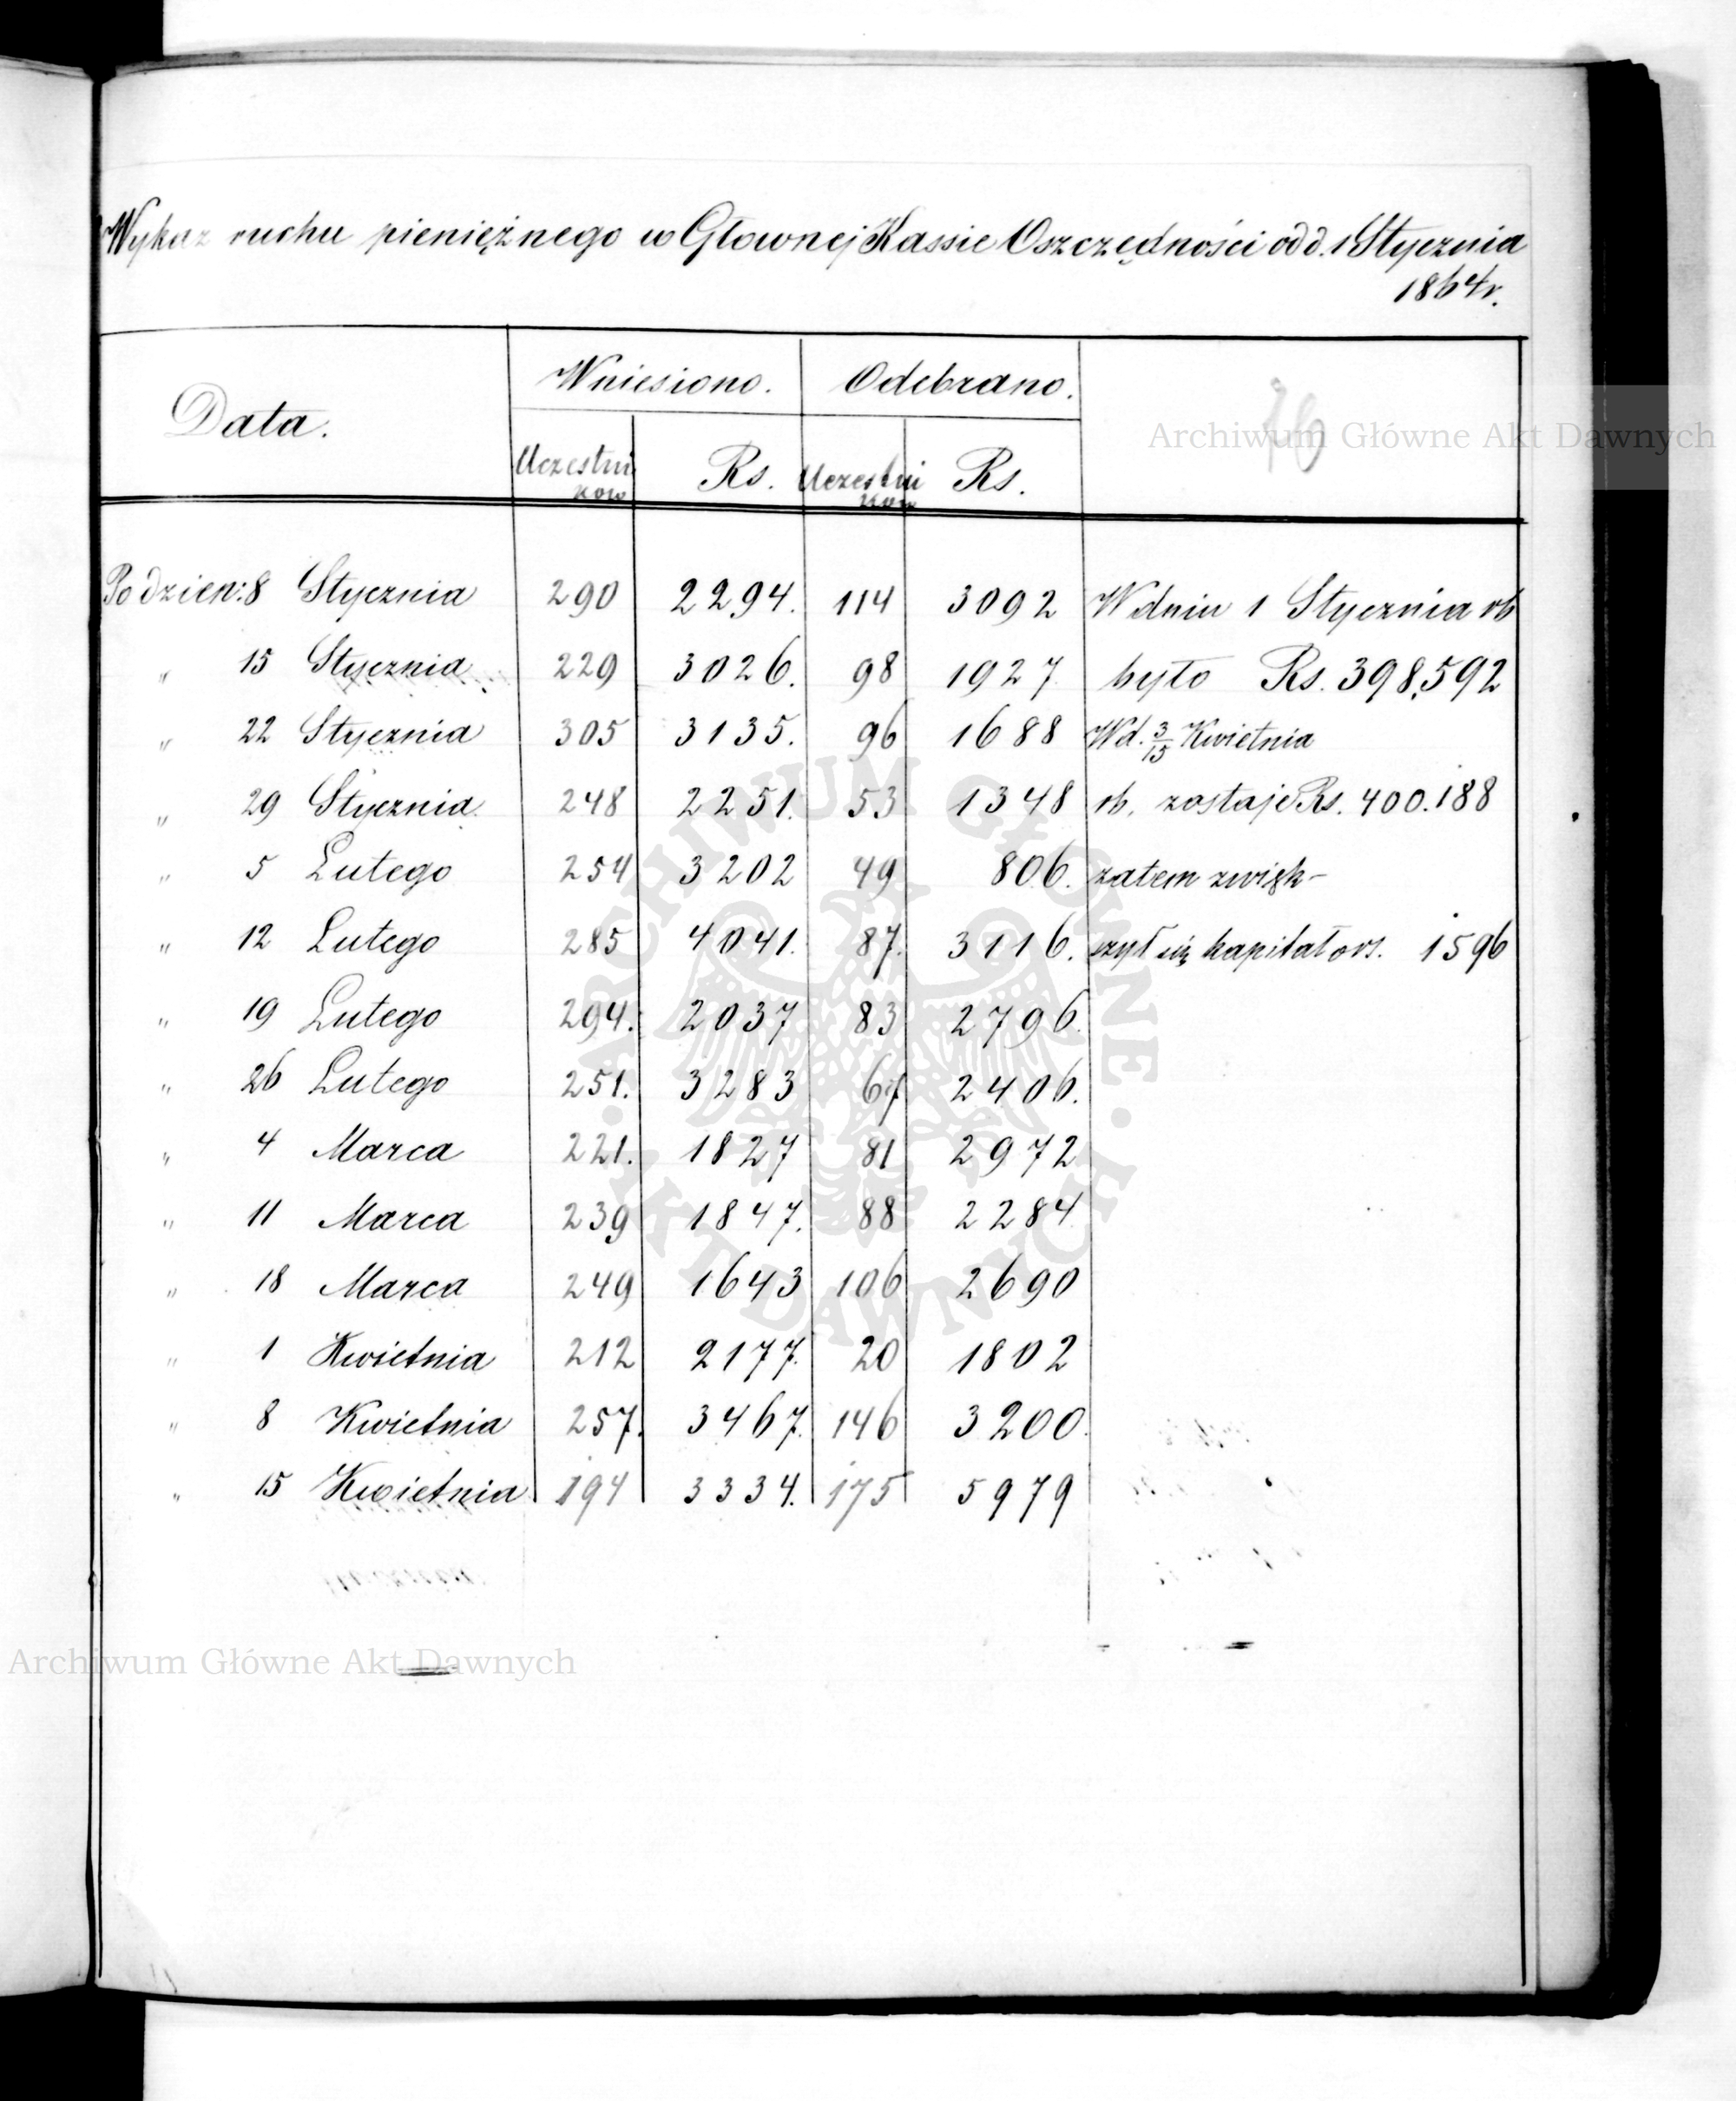 Wykaz ruchu pieniężnego w Głownej Kassie Oszczędności od d. 1 Stycznia
1864r.
Data. Wniesiono. Odebrano. 76
Uczestni Rs. Uczestni Rs.
kow kow
Po dzien: 8 Stycznia 290 2294. 114 3092 W dniu 1 Stycznia rb
" 15 Stycznia 229 3026. 98 1927 było Rs. 398,592
" 22 Stycznia 305 3135. 96 1688 Wd. 3/15 Kwietnia
" 29 Stycznia 248 2251. 53 1348 rb. zostaje Rs. 400.188
" 5 Lutego 254 3202 49 806. zatem zwięk-
" 12 Lutego 285 4041. 87. 3116. szył się kapitał o rs. 1596
" 19 Lutego 294. 2037 83 2796.
" 26 Lutego 251. 3283 67 2406.
" 4 Marca 221. 1827 81 2972
" 11 Marca 239 1847. 88 2284
" 18 Marca 249 1643 106 2690
" 1 Kwietnia 212 2177. 20 1802
" 8 Kwietnia 257. 3467. 146 3200.
" 15 Kwietnia 194 3334. 175 5979
Archiwum Główne Akt Dawnych
ARCHIWUM GŁÓWNE · AKT DAWNYCH ·
Archiwum Główne Akt Dawnych